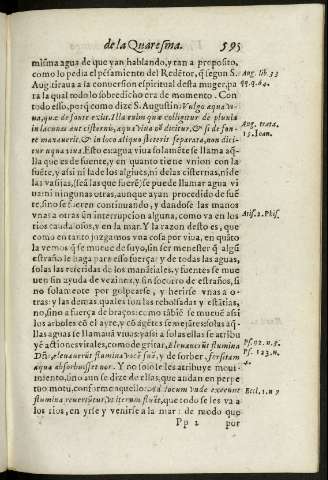 de la Quaresma. 595
misma agua de que yan hablando, y tan a proposito,
como lo pedia el pẽsamiento del Redẽtor, q̃ segun S.
Aug. tiraua a la conuersion espiritual desta muger, pa
ra la qual todo lo sobredicho era de momento. Con
todo esso, porq̃ como dize S. Augustin. Vulgo aqua vi-
ua, quæ de fonte exit. Illa enim quæ colligitur de pluuia
in lacunas aut cisternas, aqua viua nõ dicitur, & si de fon-
te manauerit, & in loco aliquo steterit separata, non dici-
tur aqua viua. Esto es: agua viua solamẽte se llama aq̃-
lla que es de fuente, y en quanto tiene vnion con la
fuẽte, y assi ni la de los algiues, ni de las cisternas, ni de
las vasijas, (seã las que fuerẽ) se puede llamar agua vi
ua: ni ningunas otras, aunque ayan procedido de fuẽ
te, sino se fueren continuando, y dandose las manos
vnas a otras sin interrupcion alguna, como va en los
rios caudalosos, y en la mar. Y la razon desto es, que
como en tanto juzgamos vna cosa por viua, en quãto
la vemos q̃ se mueue de suyo, sin ser menester q̃ algũ
estraño le haga para esso fuerça: y de todas las aguas,
solas las referidas de los manãtiales, y fuentes se mue
uen sin ayuda de vezinos, y sin socorro de estraños, si
no solamente por golpearse, y herirse vnas a o-
tras: y las demas, quales son las rebolsadas y estãtias,
no, sino a fuerça de braços: como tãbiẽ se mueuẽ assi
los arboles cõ el ayre, y cõ agẽtes semejãtes: solas aq̃-
llas aguas se llamarã viuas: y assi a solas ellas se atribu
yẽ actiones vitales, como de gritar, Eleuauerũt flumina
Dñe, eleuauerũt flumina vocẽ suã, y de sorber, forsitam
aqua absorbuisset nos. Y no solo se les atribuye moui-
miento, sino aun se dize de ellas, que andan en perpe
tuo motu, conforme aquello: Ad locum vnde exeunt
flumina reuertũtur, vt iterum fluãt, que todo se les va a
los rios, en yrse y venirse a la mar: de modo que
Pp 2 por
Aug. lib. 33
Aug. tract.
15. Ioan.
Arist. 2. Phis.
Ps. 92. n. 5.
Ps. 123. n.
Eccl. 1. n. 7